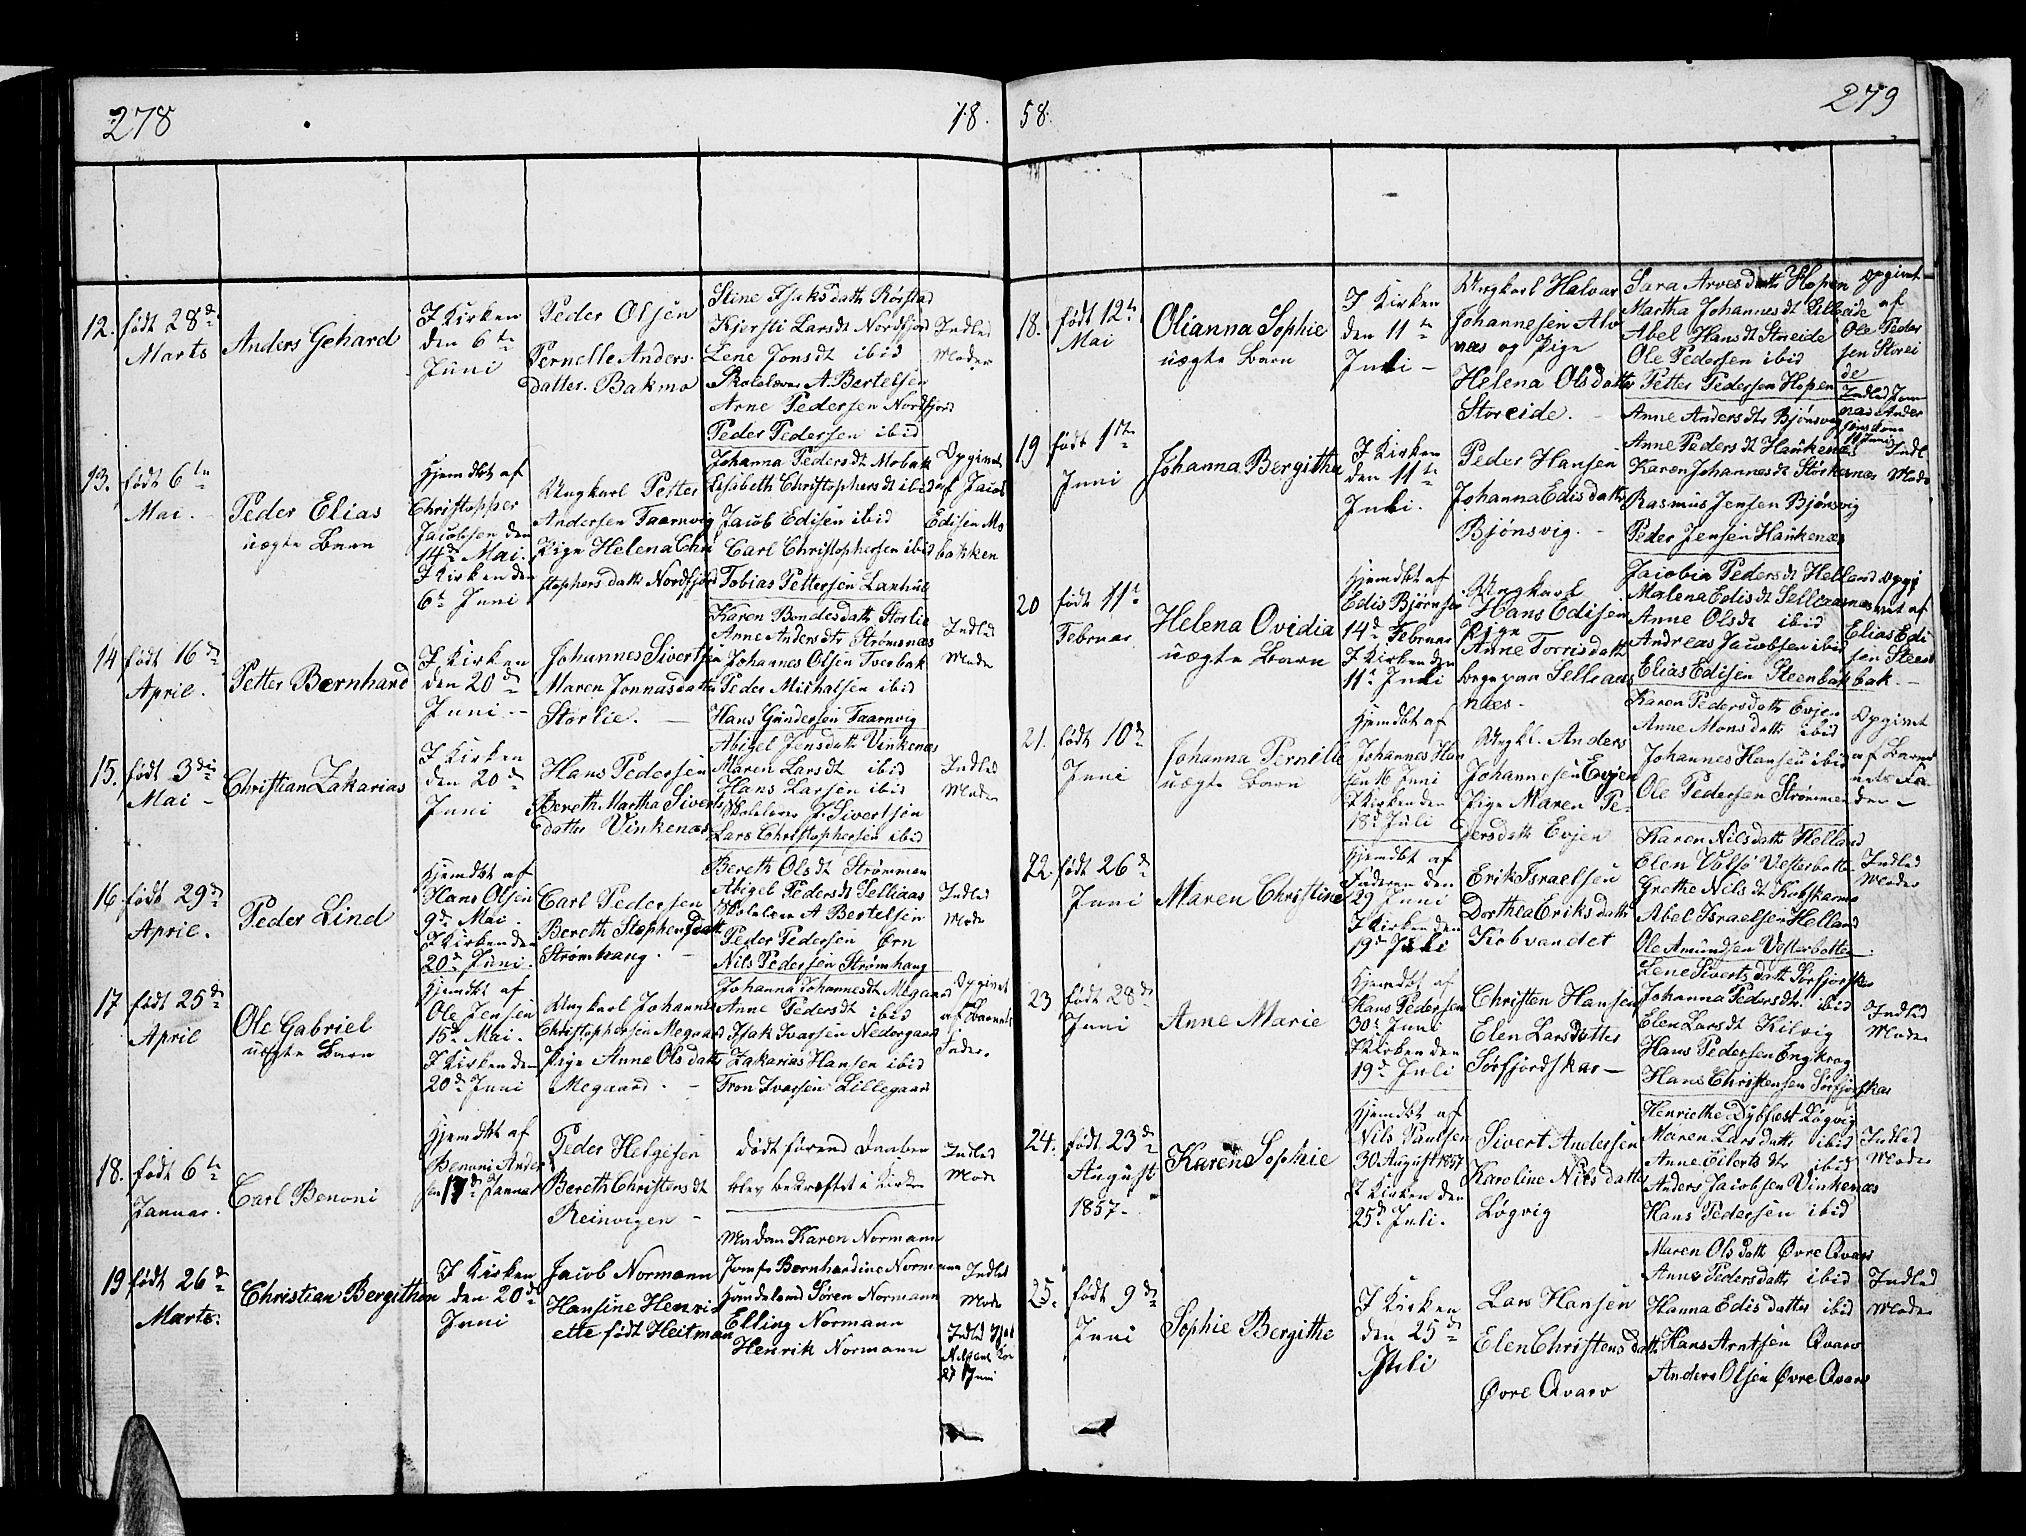 278
18.
12. født 28de
Marts
Anders Gehard
I Kirken
den 6te
Juni
Peder Olsen
Pernelle Anders-
datter. Bakmo
Stine Isaksdatt Rørstad
Kjersti Larsdt Nordfjord
Lene Jonsdt ibid
Skolelærer A. Bertelsen
Arne Pedersen Nordfjord
Peder Pedersen ibid
Indled
Moder
13. født 6te
Mai.
Peder Elias
uægte Barn
Hjemdbt af
Christopher
Jacobsen den
14de Mai.
I Kirken den
6te Juni
Ungkarl Petter
Andersen Taarnvig
Pige Helena Chri
stophersdatt Nordfjord
Johanna Pedersdt Mobak
Lisabeth Christophersdt ibid
Jacob Edisen ibid
Carl Christophersen ibid
Tobias Pettersen
Opgivet
af Jacob
Edisen Mo
bakken
14 født 16de
April.
Petter Bernhard
I Kirken
den 20de
Juni
Johannes Sivertsen
Maren Jonnasdatter
Storlie.
Karen Bendesdatt Storlie
Anne Andersdtr Strømsnæs
Johannes Olsen Tverbak
Peder Michalsen ibid
Hans Gundersen Taarnvig
Indled
Moder
15. født 3die
Mai
Christian Zakarias
I Kirken
den 20de
Juni
Hans Pedersen
Bereth Martha Siverts
datter Vinkenæs
Abigel Jensdatt Vinkenæs
Maren Larsdt ibid
Hans Larsen ibid
Skolelærer J. Sivertsen
Lars Christophersen ibid
Indled
Moder
16 født 29de
April.
Peder Lind
Hjemdbt af
Hans Olsen
9de Mai.
I Kirken den
20de Juni.
Carl Pedersen
Bereth Stephensdatt
Strømhaug.
Bereth Olsdt Strømmen
Abigel Pedersdt Selliaas
Skolelærer A Bertelsen
Peder Pedersen Ørn
Nils Pedersen Strømhaug
Indled
Moder
17 født 25de
April
Ole Gabriel
uægte Barn
Hjemdbt af
Ole Jensen
15de Mai.
I Kirken den
20de Juni
Ungkarl Johannes
Christophersen Megaard
Pige Anne Olsdatt
Megaard.
Johanna Johannesdt Megaard
Anne Pedersdt ibid
Isak Ivarsen Nedergaard
Zakarias Hansen ibid
Tron Ivarsen Lillegaard
Opgivet
af Barnets
Fader.
18. født 6te
Januar.
Carl Benoni
Hjemdbt af
Benoni Ander
sen 17de Januar
Peder Helgesen
Bereth Christensdt
Reinvigen
Død førend Daaben
blev bekræftet i Kirken
Indled
Moder
19 født 26de
Marts.
Christian Bergithon
I Kirken
den 20de
Juni
Jacob Normann
Hansine Henrid
ette født Heitmann
Madam Karen Normann
Jomfr Bernhardine Normann
Handelsmd Sören Normann
Elling Normann
Henrik Normann
Indled
Moder
Juni
58.
279
18. født 12te
Mai
Olianna Sophie
uægte Barn
I Kirken
den 11te
Juli
Ungkarl Halvar
Johannesen Alv
næs og Pige
Helena Olsdatter
Storeide.
Sara Arvesdatt Hopen
Martha Johannesdt
Abel Hansdt Storeide
Ole Pedersen ibid
Petter Pedersen Hopen
Opgivet
af
Ole Peder
sen Storei
de
19 født 1ste
Juni
Johanna Bergitha
I Kirken
den 11te
Juli.
Peder Hansen
Johanna Edisdatter
Bjønsvig.
Anne Andersdtr Bjønsvig
Anne Pedersdt Haukenæs
Karen Johannesdt Storkenæs
Rasmus Jensen Bjønsvig
Peder Jensen Haukenæs
Indl
Moder
20 født 11te
Februar
Helena Ovidia
uægte Barn
Hjemdbt af
Edis Bjørnsen
14de Februar
I Kirken den
11te Juli
Ungkarl
Hans Edisen
Pige
Anne Torrisdatt
begge paa Selleaas
næs.
Jacobia Pedersdt Helland
Malena Edisdt Selleaasnæs
Anne Olsdt ibid
Andreas Jacobsen ibid
Elias Edisen Steenbak
Opgi
vet af
Elias Edi
sen Steen
bak.
21. født 10de
Juni
Johanna Pernille
uægte Barn
Hjemdbt af
Johannes Han
sen 16 Juni
I Kirken den
18de Juli
Ungkl. Anders
Johannesen Evjen
Pige Maren Pe-
dersdatt Evjen
Karen Pedersdatt Evjen
Anne Monsdatt ibid
Johannes Hansen ibid
Ole Pedersen Strømmen
Opgivet
af Barnets
Fa
der
22. født 26de
Juni
Maren Christine
Hjemdbt af
Faderen den
29 Juni
I Kirken den
19de Juli
Erik Israelsen
Dorthea Eriksdatt
Kobvandet
Karen Nilsdatt Helland
Elen Volfø Vesterbotten
Grethe Nilsdt
Abel Israelsen Helland
Ole Amundsen Vesterbotten
Indled
Moder
23 født 28de
Juni
Anne Marie
Hjemdbt af
Hans Pedersen
30te Juni
I Kirken den
19de Juli
Christen Hansen
Elen Larsdatter
Sørfjordskar
Lene Sivertsdatt Sørfjordskar
Johanna Pedersdtr ibid
Elen Larsdt Kilvig
Hans Pedersen Engkrog
Hans Christensen Sørfjordskar
Indled
Moder
24. født 23de
August
1857
Karen Sophie
Hjemdbt af
Nils Paulsen
30 August 1857
I Kirken den
25de Juli.
Sivert Andersen
Karoline Nilsdatter
Løgvig
Henriethe Dybfest Løgvig
Maren Larsdatt ibid
Anne Eilertsdtr ibid
Anders Jacobsen Vinkenæs
Hans Pedersen ibid
Indled
Moder
25. født 9de
Juni
Sophie Bergithe
I Kirken
den 25de
Juli
Lars Hansen
Elen Christensdatt
Øvre Qvarv
Maren Olsdatt Øvre Qvarv
Anne Pedersdatt ibid
Hanna Edisdatter ibid
Hans Arntsen Qvarv
Anders Olsen Øvre Qvarv
Indled
Moder